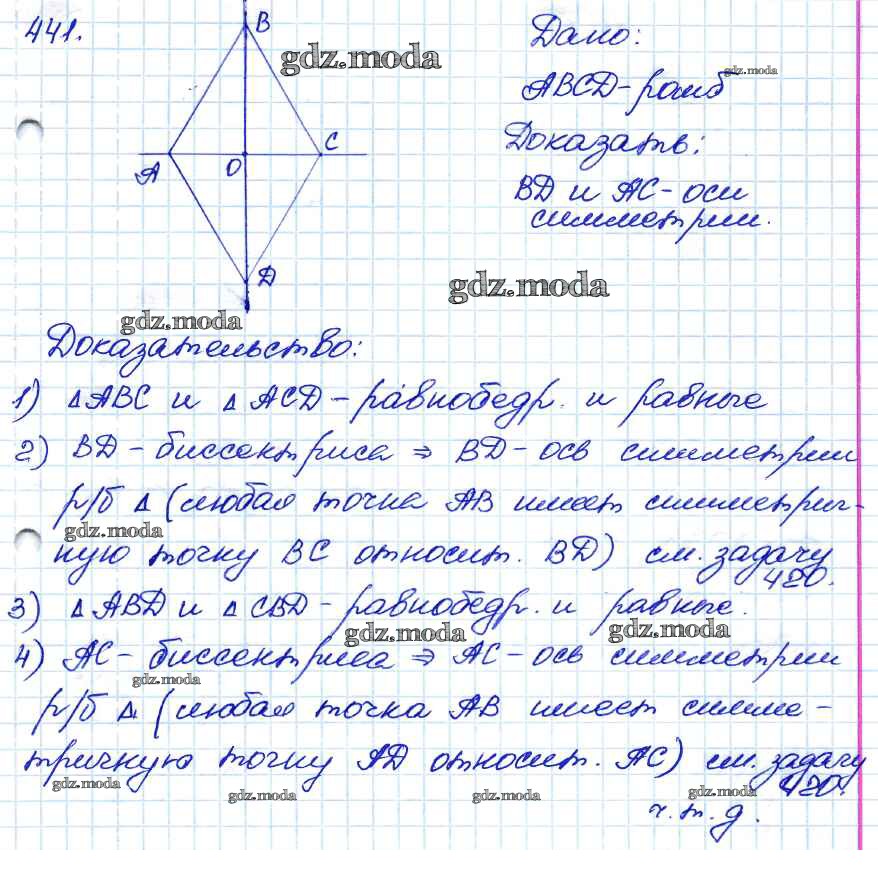 441.
B
Дано:
gdz.moda
gdz.moda
ABCD - ромб
Доказать:
A
O
C
BD и AC - оси
симметрии.
D
gdz.moda
gdz.moda
Доказательство:
1) △ABC и △ACD - равнобедр. и равные
2) BD - биссектриса ⇒ BD - ось симметрии
р/б △ (любая точка AB имеет симметрич-
gdz.moda
ную точку BC относит. BD) см. задачу
420.
3) △ABD и △CBD - равнобедр. и равные.
gdz.moda
gdz.moda
4) AC - биссектриса ⇒ AC - ось симметрии
gdz.moda
р/б △ (любая точка AB имеет симме-
тричную точку AD относит. AC) см. задачу
420.
gdz.moda
gdz.moda
gdz.moda
gdz.moda
ч.т.д.